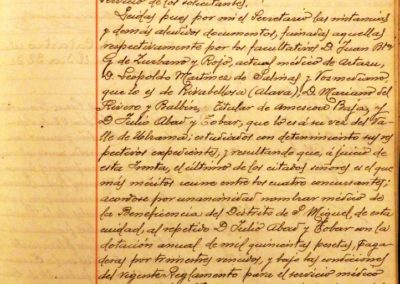 servicio de los solicitantes.
Leidas pues por mi el Secretario las instancias
y demás aludidos documentos, firmadas aquellas
respectivamente por los facultativos D. Juan Btª
G. de Zurbano y Rojo, actual médico de Artazu,
D. Leopoldo Martinez de Salinas y Vozmediano,
que lo es de Rivabellosa (Alava), D. Mariano del
Rivero y Ballin, titular de Amescoa Baja, y
D. Julio Abad y Tobar, que lo es á su vez del Va-
lle de Ulzama; estudiados con detenimiento sus res-
pectivos expedientes; y resultando que, á juicio de
esta Junta, el último de los citados señores es el que
más méritos reune entre los cuatro concursantes;
acordose por unanimidad nombrar médico de
la Beneficencia del Distrito de Sn Miguel de esta
ciudad, al repetido D. Julio Abad y Tobar con la
dotación anual de mil quinientas pesetas, paga-
deras por trimestres vencidos, y bajo las condiciones
del vigente Reglamento para el servicio médico